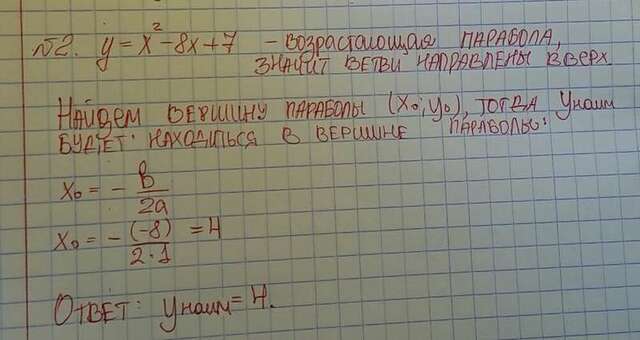 №2. y = x² - 8x + 7 - возрастающая парабола,
значит ветви направлены вверх
Найдем вершину параболы (x₀; y₀), тогда yнаим
будет находиться в вершине параболы:
x₀ = - b/2a
x₀ = - (-8)/2·1 = 4
Ответ: yнаим = 4.